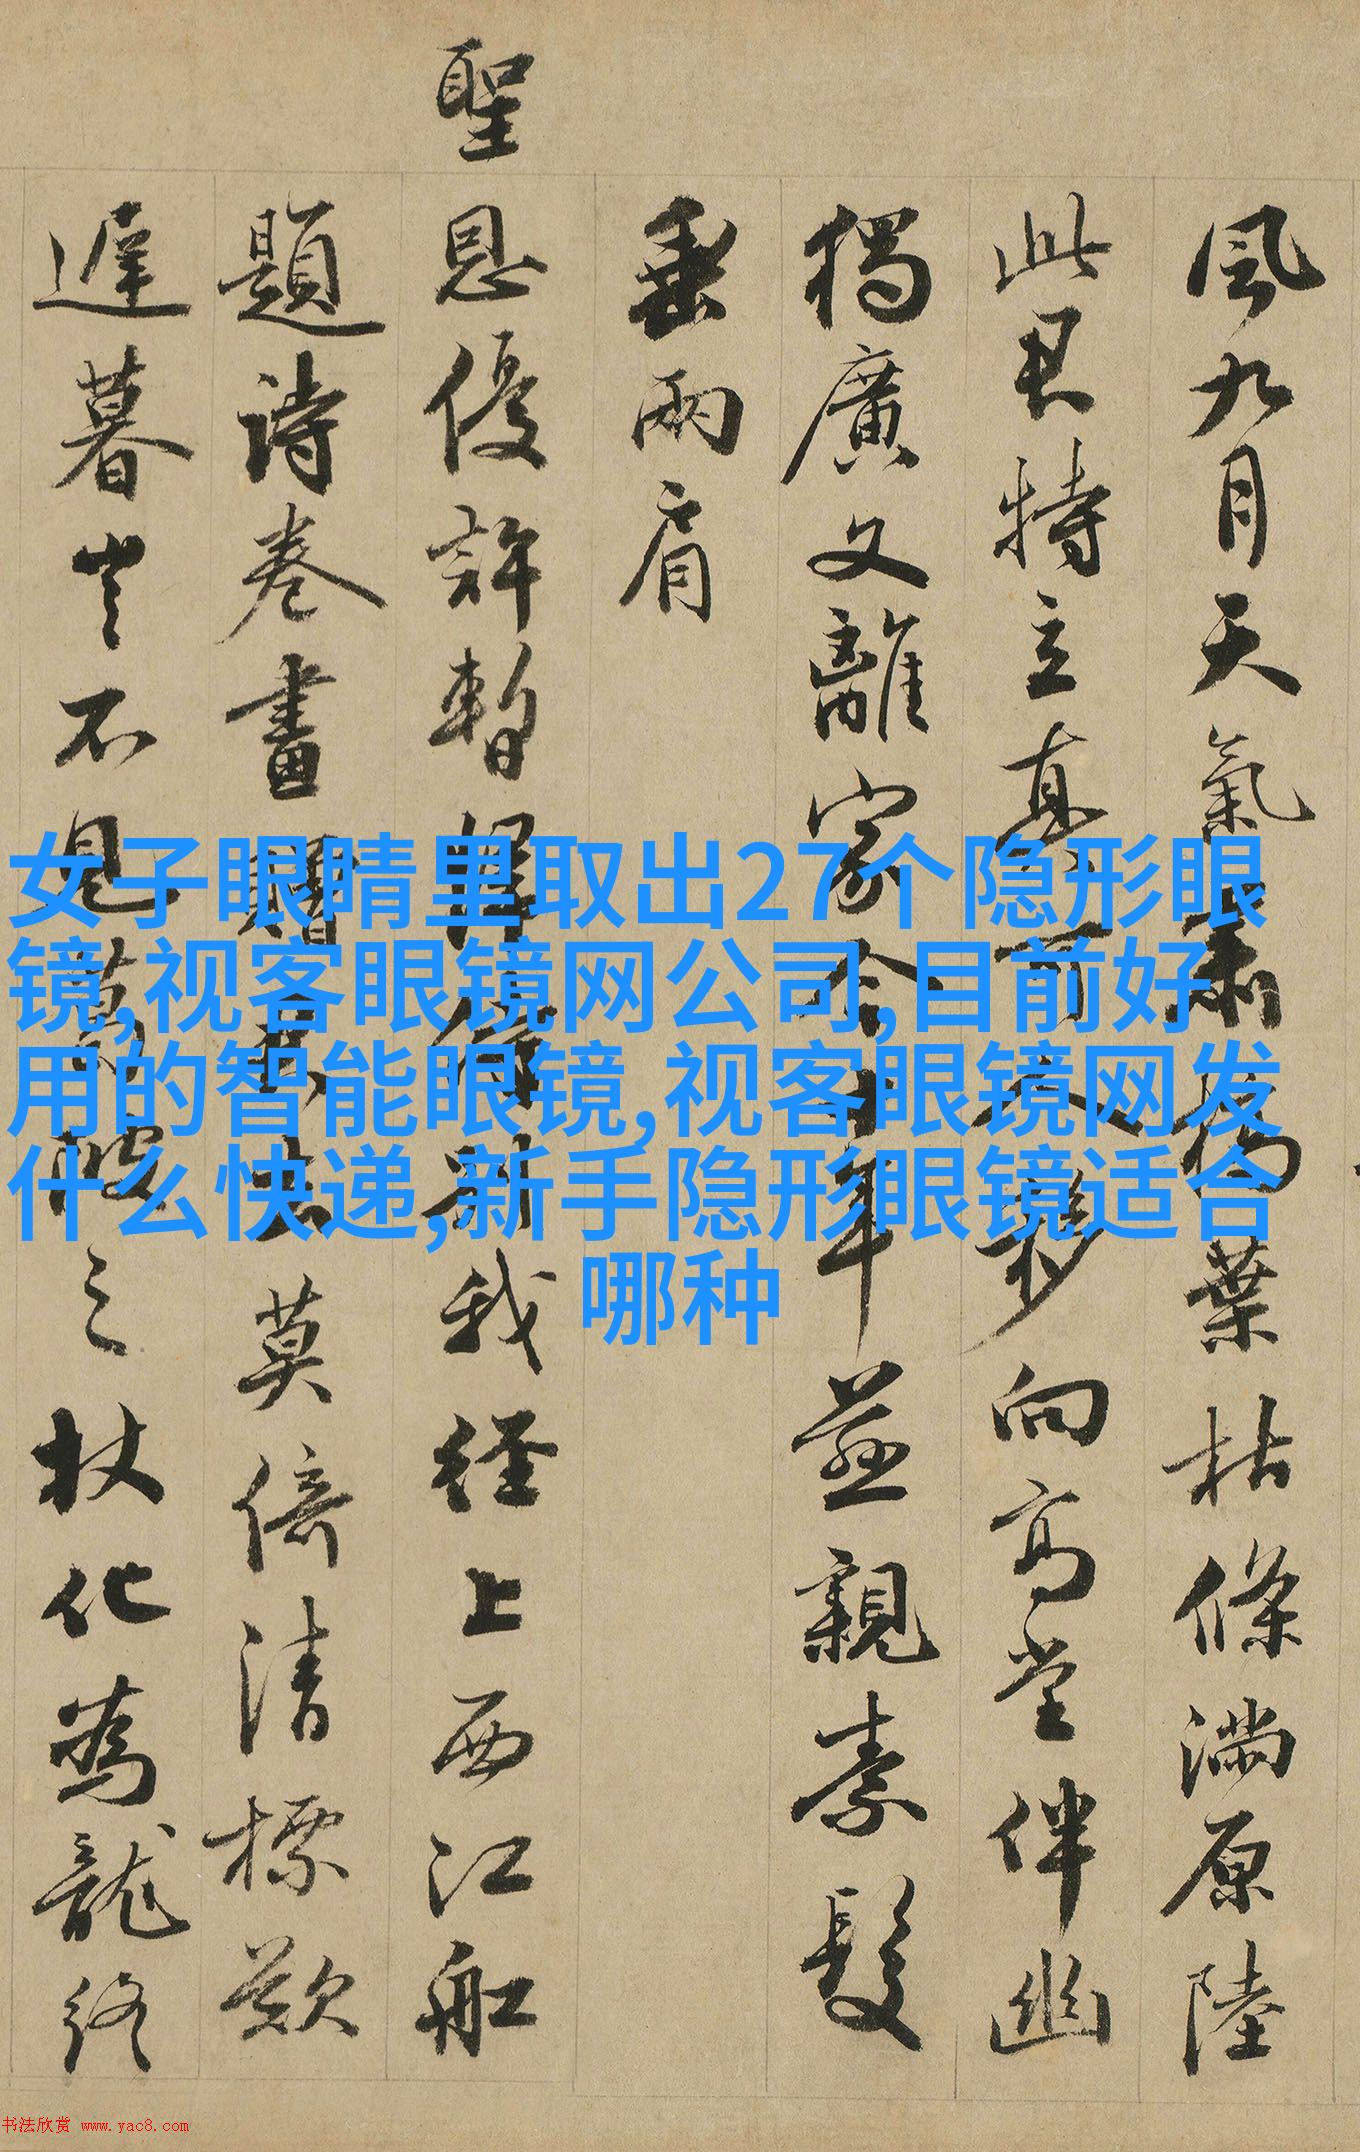 風九月天氣肅楊葉枯條滿原陸
此君特立真可人移向高堂伴幽
獨廣文離家今十年並親素髮
垂兩肩
聖
恩優許暫歸我經上西江舩
題詩卷畫莫倍清標歎
遲暮豈不見葛陂之杖化為龍終
女子眼睛里取出27个隐形眼
镜,视客眼镜网公司,目前好
用的智能眼镜,视客眼镜网发
什么快递,新手隐形眼镜适合
哪种
书法欣赏 www.yac8.com